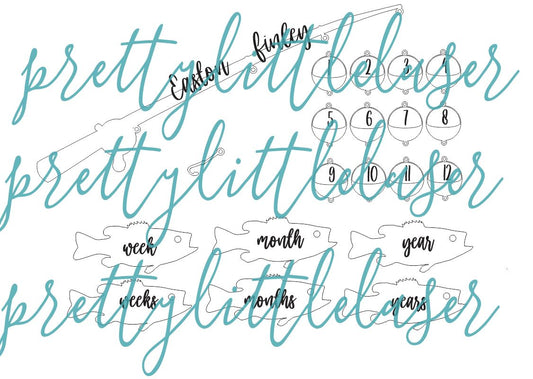 Easton finley
prettylittlelaser
1 2 3 4
5 6 7 8
prettylittlelaser
9 10 11 12
week month year
prettylittlelaser
weeks months years